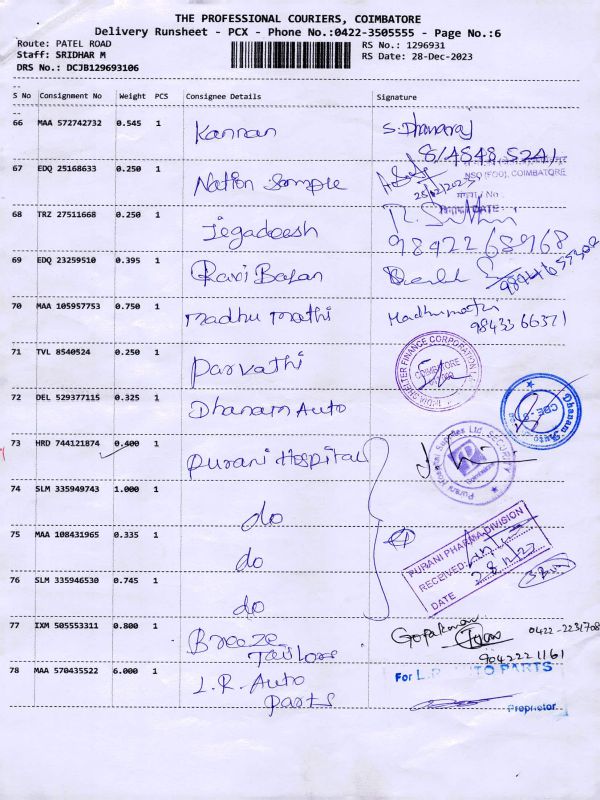 THE PROFESSIONAL COURIERS, COIMBATORE
Delivery Runsheet - PCX - Phone No.:0422-3505555 - Page No.:6
Route: PATEL ROAD
RS No.: 1296931
Staff: SRIDHAR M
RS Date: 28-Dec-2023
DRS No.: DCJB129693106
S No Consignment No Weight PCS Consignee Details Signature
66 MAA 572742732 0.545 1 Kannan S. Dhanaraj
67 EDQ 25168633 0.250 1 Nation Sample
NSO (FOD), COIMBATORE
68 TRZ 27511668 0.250 1 Jegadeesh
9842268968
69 EDQ 23259510 0.395 1 Ravi Balan
70 MAA 105957753 0.750 1 Madhu Mathi Madhumathi
9843366371
71 TVL 8540524 0.250 1 Parvathi
SHELTER FINANCE CORPORATION
COIMBATORE
72 DEL 529377115 0.325 1 Dhanam Auto
Dhanam Auto
CBE-9
73 HRD 744121874 0.400 1 Purani Hospital
Purani Hospital Supplies Ltd. SECURITY
74 SLM 335949743 1.000 1 do
75 MAA 108431965 0.335 1 do
PURANI PHARMA DIVISION
RECEIVED:
DATE
76 SLM 335946530 0.745 1 do
77 IXM 505553311 0.800 1 Breeze
Tailors
0422-2231708
9042221161
78 MAA 570435522 6.000 1 L.R. Auto
Parts
For L.R. AUTO PARTS
Proprietor